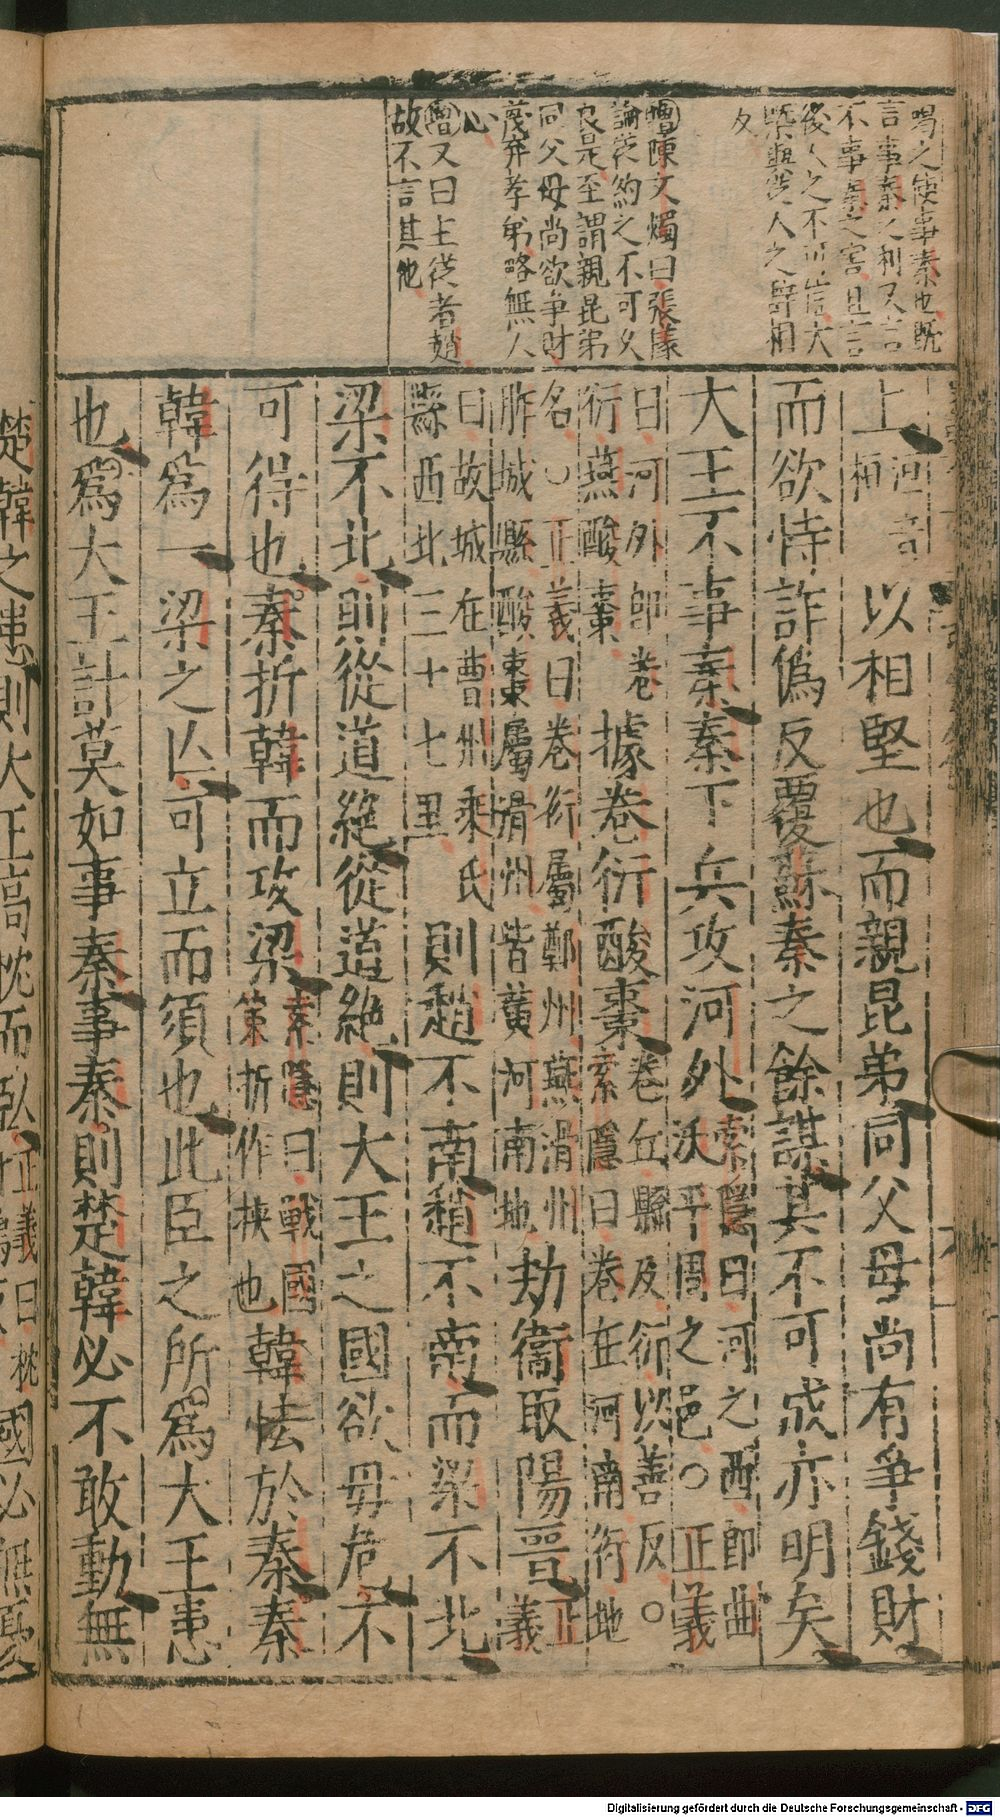 喝之使事秦也既
言事秦之利又言
不事秦之害且言
後人之不可信大
槩與從人之辭相
反
增陳文燭曰張儀
論從約之不可久
良是至謂親昆弟
同父母尚欲爭財
蔑弃孝弟略無人
心
增又曰主從者趙
故不言其他
上洹音桓以相堅也而親昆弟同父母尚有爭錢財
而欲恃詐僞反覆蘇秦之餘謀其不可成亦明矣
大王不事秦秦下兵攻河外索隱曰河之西即曲沃平周之邑○正義
曰河外即卷衍燕酸棗據卷衍酸棗卷丘縣及衍以善反○索隱曰卷在河南衍地
名○正義曰卷衍屬鄭州燕滑州胙城縣酸棗屬滑州皆黃河南地劫衞取陽晉正義
曰故城在曹州乘氏縣西北三十七里則趙不南趙不南而梁不北
梁不北則從道絶從道絶則大王之國欲毋危不
可得也秦折韓而攻梁索隱曰戰國策折作挾也韓怯於秦秦
韓爲一梁之亾可立而須也此臣之所爲大王患
也爲大王計莫如事秦事秦則楚韓必不敢動無
楚韓之患則大王高枕而臥正義曰枕國必無憂
Digitalisierung gefördert durch die Deutsche Forschungsgemeinschaft - DFG